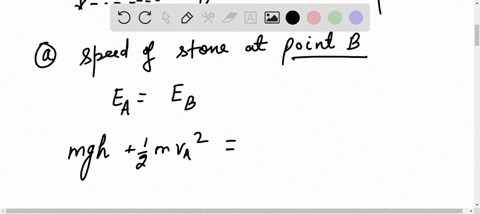 (a) speed of stone at point B
E_A = E_B
mgh + 1/2 m v_A^2 =